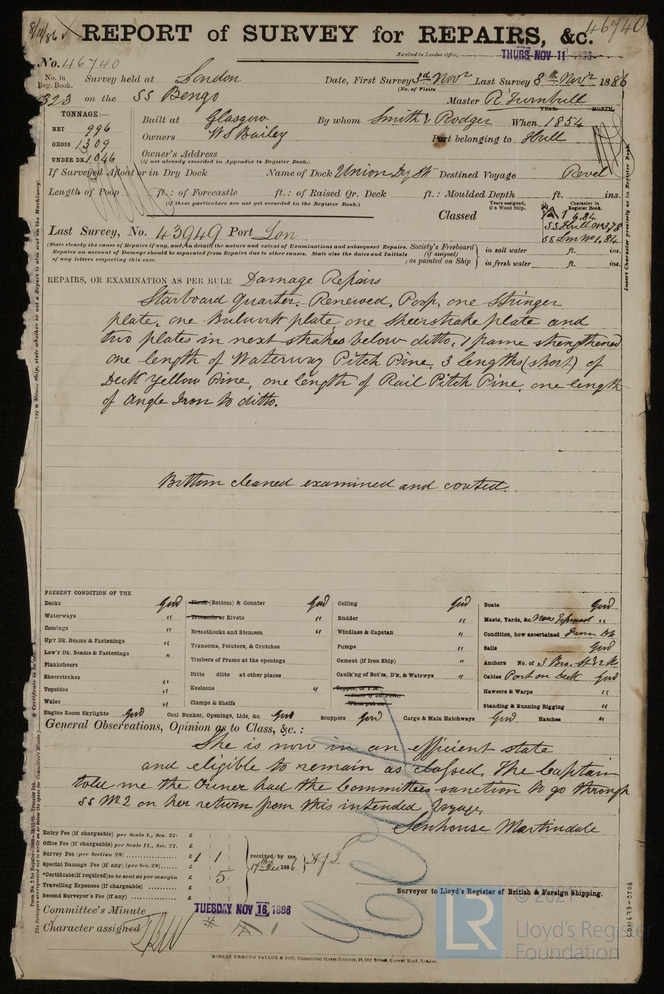 8/11/86
REPORT of SURVEY for REPAIRS, &c. 46740
Received in London Office, THURS. NOV. 11 1886
No. 46740
No. in Reg. Book. Survey held at London Date, First Survey 3rd Novr Last Survey 8th Novr 1886
(No. of Visits
823 on the SS Bengo Master R Turnbull
TONNAGE:— YEAR. MONTH.
NET 996 Built at Glasgow By whom Smith & Rodger When 1854
GROSS 1309 Owners W S Bailey Port belonging to Hull
UNDER DK. 1046 Owner's Address
(if not already recorded in Appendix to Register Book.)
If Surveyed Afloat or in Dry Dock Name of Dock Union Dry Dk Destined Voyage Revel
Length of Poop ft.: of Forecastle ft.: of Raised Qr. Deck ft.: Moulded Depth ft. ins.
(if these particulars are not yet recorded in the Register Book.)
Years assigned, if a Wood Ship. Character in Register Book.
Classed 1 6.84
Last Survey, No. 43949 Port Lon SS Hull No 3 78
SS Lon No 1.84
(State clearly the cause of Repairs if any, and, in detail, the nature and extent of Examinations and subsequent Repairs.
Repairs on account of Damage should be separated from Repairs due to other causes. State also the dates and Initials
of any letters respecting this case.)
Society's Freeboard (if assigned) as painted on Ship
in salt water ft. ins.
in fresh water ft. ins.
REPAIRS, OR EXAMINATION AS PER RULE Damage Repairs
Starboard Quarter. Renewed. Poop, one Stringer
plate, one Bulwark plate one sheerstrake plate and
two plates in next strakes below ditto, 1 frame strengthened
one length of Waterway Pitch Pine, 3 lengths (short) of
Deck Yellow Pine, one length of Rail Pitch Pine, one length
of Angle Iron to ditto.
Bottom cleaned examined and coated.
PRESENT CONDITION OF THE
Decks Good
Waterways "
Comings "
Up'r Dk. Beams & Fastenings "
Low'r Dk. Beams & Fastenings "
Planksheers
Sheerstrakes "
Topsides "
Wales "
Engine Room Skylights Good
Plank (Bottom) & Counter Good
Treenails or Rivets "
Breasthooks and Stemson "
Transoms, Pointers, & Crutches
Timbers of Frame at the openings
Ditto ditto at other places
Keelsons "
Clamps & Shelfs
Coal Bunker, Openings, Lids, &c. Good
Ceiling Good
Rudder "
Windlass & Capstan "
Pumps "
Cement (if Iron Ship) "
Caulk'ng of Bot'm, D'k, & Watrwys "
Scuppers Good Cargo & Main Hatchways Good Hatches "
Boats Good
Masts, Yards, &c. "
Condition, how ascertained From Dk
Sails Good
Anchors No. of 3 Bro. St & 2 K.
Cables Part on Deck Good
Hawsers & Warps "
Standing & Running Rigging "
General Observations, Opinion as to Class, &c.:
She is now in an efficient state
and eligible to remain as classed. The Captain
told me the Owner had the Committees sanction to go through
SS No 2 on her return from this intended Voyage.
Senhouse Martindale
Entry Fee (if chargeable) per Scale I., Sec. 27: £
Office Fee (if chargeable) per Scale II., Sec. 27. £
Survey Fee (per Section 28) £ 1 1
Special Damage Fee (if any) (per Sec. 28) £
*Certificate (if required) to be sent as per margin £ 5
Travelling Expenses (if chargeable) £
Second Surveyor's Fee (if any) £
received by me,
17th Decr 1886
Surveyor to Lloyd's Register of British & Foreign Shipping.
Committee's Minute TUESDAY NOV 16 1886
Character assigned
ROBERT EDMUND TAYLOR & SON, Commercial Steam Printers, 19, Old Street, Goswell Road, London.
LR © 2021
Lloyd's Register
Foundation
LON678-0506